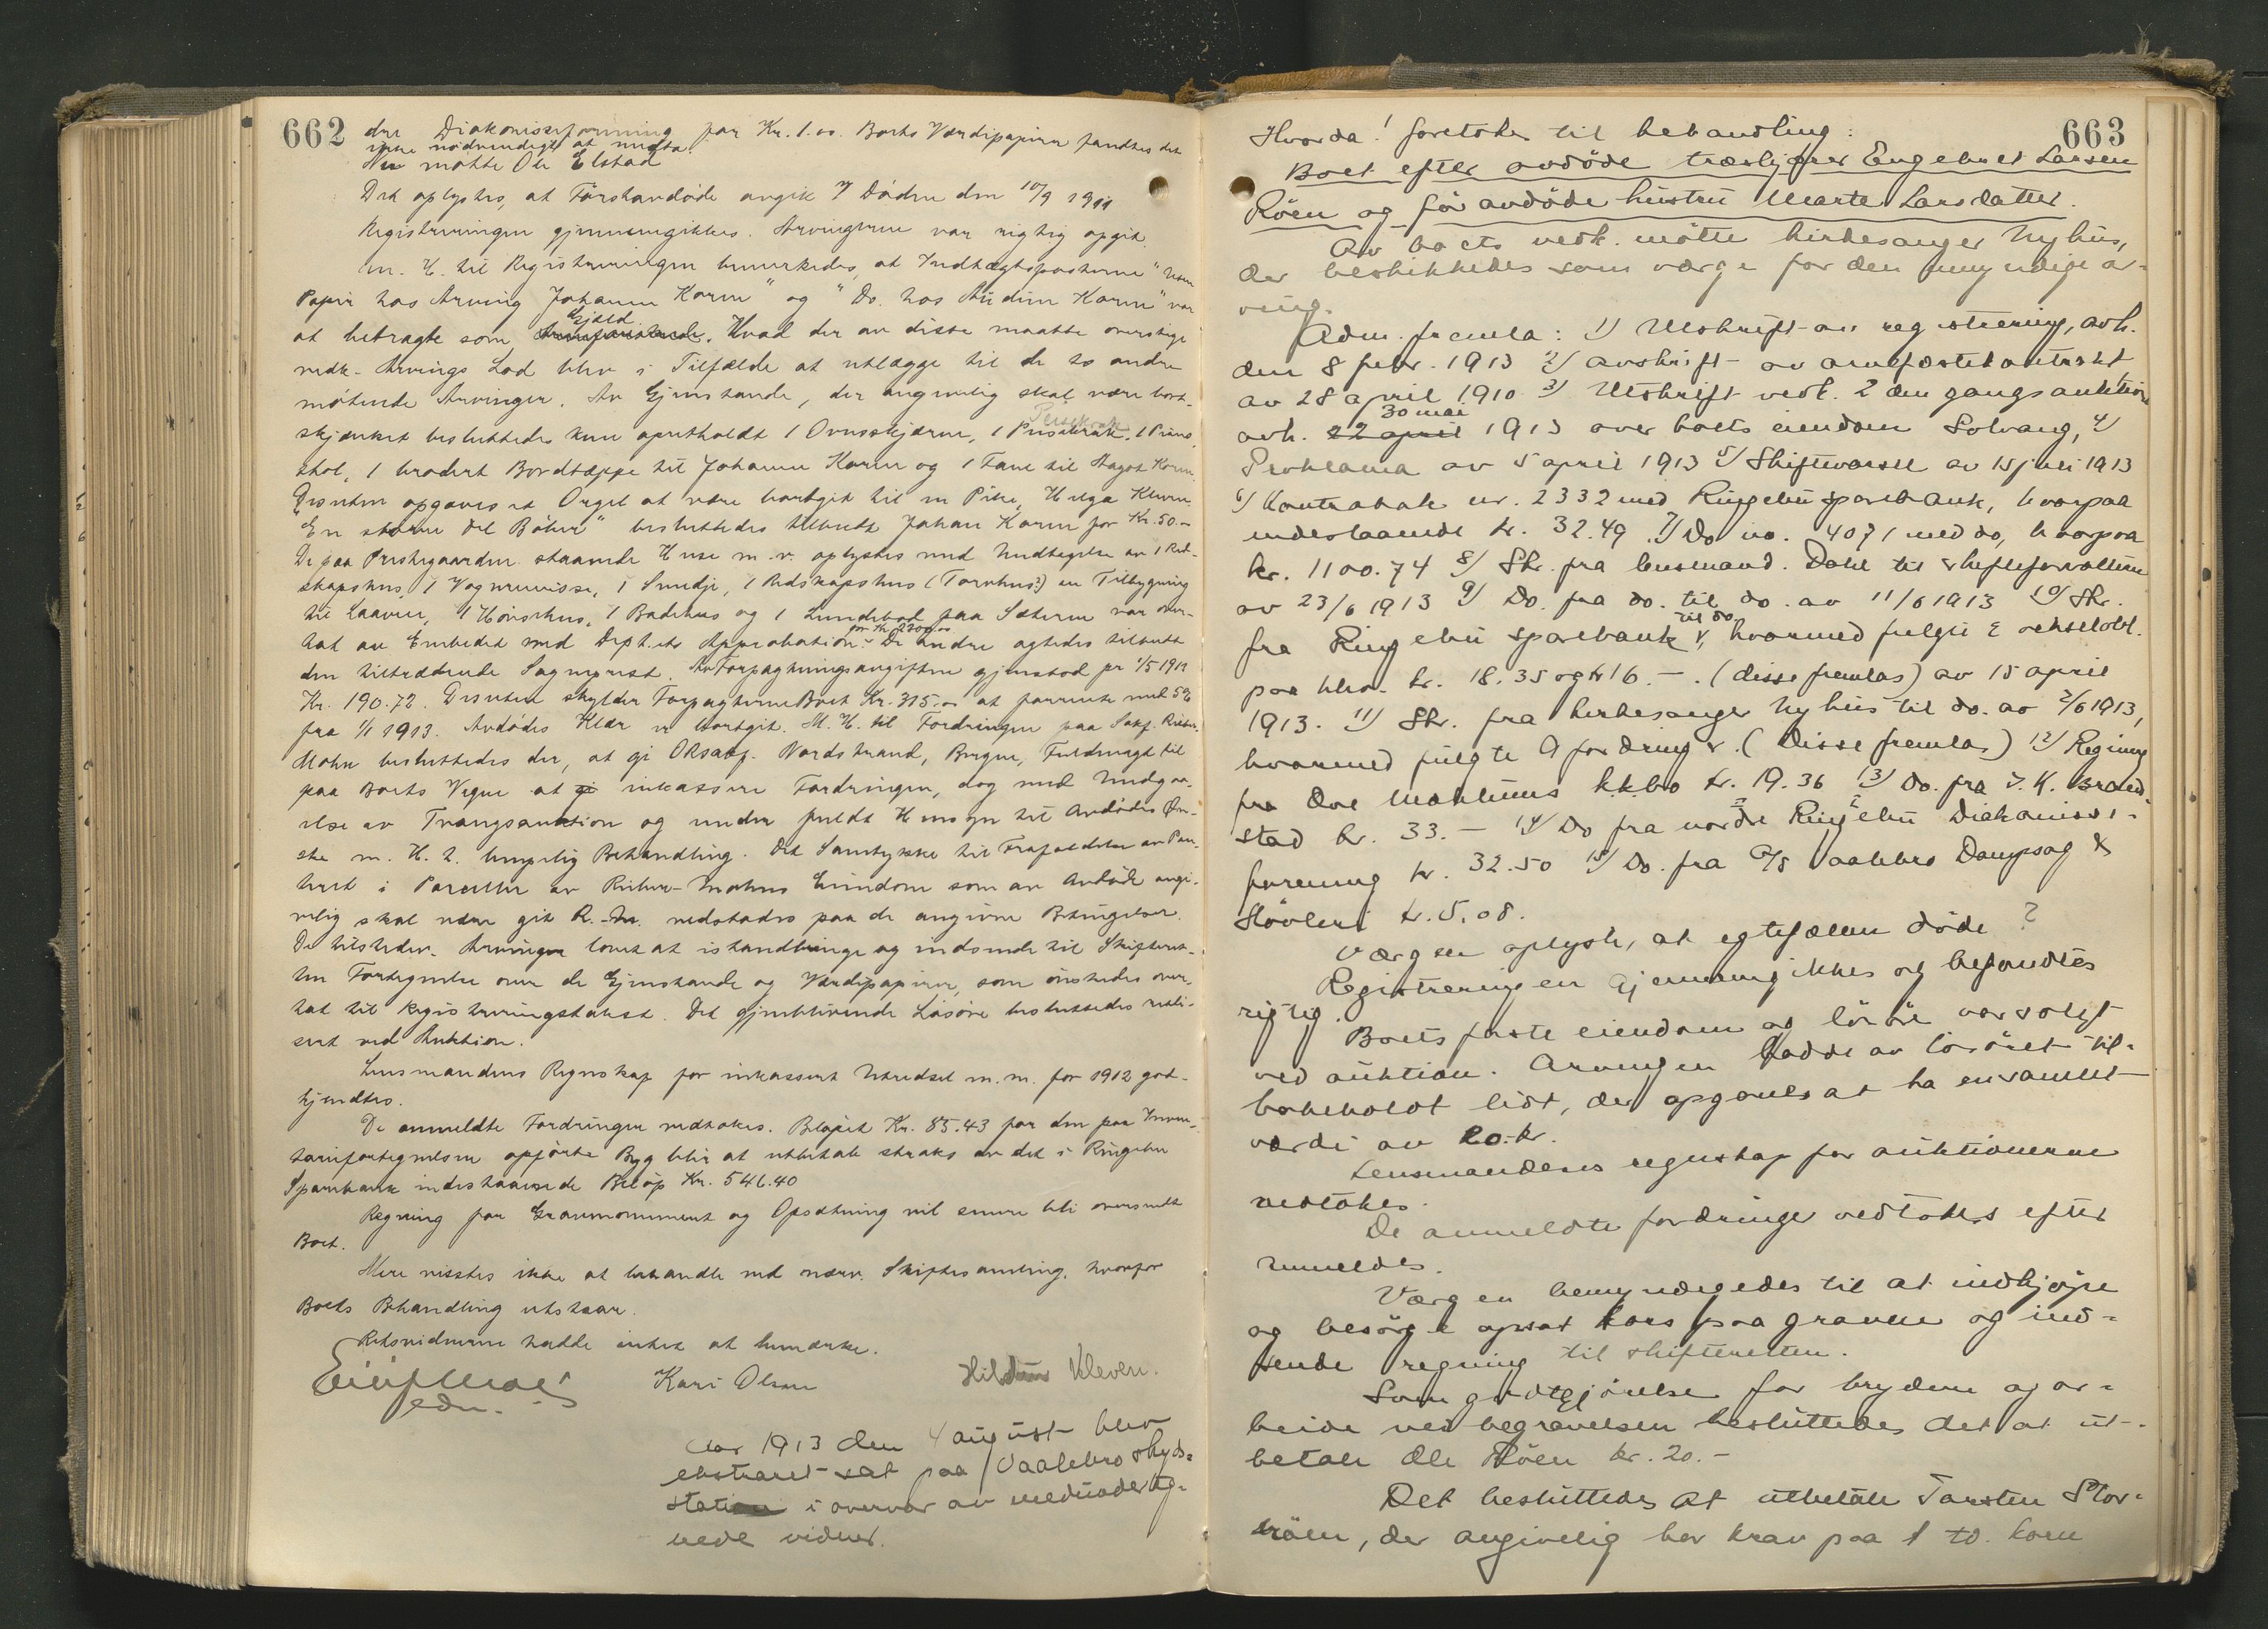 662
dre Diakonisseforening paa Kr. 1.00. Boets Værdipapirer fandtes det
ikke nødvendigt at møta.
Nu møtte Ole Elstad
Det oplystes, at Førstavdøde avgik v Døden den 10/9 1911
Registreringen gjennemgikkes. Arvingerne var rigtig opgit.
m. H. til Registreringen bemerkedes, at Indtægtsposterne "
Papir hos Arving Johanne Karen" og "Do. hos Audun Karen" var
at betragte som Gjæld. Hvad der av disse maatte overstige
vedk. Arvings Lod blev i Tilfælde at utlægge til de to andre
møtende Arvinger. Av Gjenstande, der angivelig skal være bort-
skjænket besluttedes kun opretholdt 1 Ovnsskjærm, 1 Peisekrak, 1 Piano
stol, 1 brodert Bordtæppe til Johanne Karen og 1 Fane til Aagot Karen
Desuten opgaves et Orgel at være bortgit til en Pike, Helga Kleven.
"En større Del Bøker" besluttedes tilbudt Johan Karen for Kr. 50.-
De paa Prestegaarden staaende Huse m. v. oplystes med Undtagelse av 1 Red-
skapshus, 1 Vognremisse, 1 Smedje, 1 Redskapshus (Tørrhus?) en Tilbygning
til Laaven, 1 Hønsehus, 1 Badehus og 1 paa Sæteren var over-
tat av Embedet med Dept.ets Approbation for Kr. 2200.00. De andre agtedes tilbutt
den tiltrædende Sogneprest. Av Forpagtningsavgiften gjenstod pr 1/5 1912
Kr. 190.72. Desuten skylder Forpagteren Boet Kr. 315.- at forrente med 5%
fra 1/1 1913. Avdødes Klær er bortgit. M. H. til Fordringen paa Sakf. Rieber-
Mohn besluttedes der, at gi ORsakf. Nordstrand, Bergen, Fuldmagt til
paa Boets Vegne at inkassere Fordringen, dog med Undgaa-
else av Tvangsauktion og under fuldt Hensyn til Avdødes Øn-
ske m. H. t. lempelig Behandling. Det Samtykke til Frafaldelse av Pan-
teret i Parceller av Rieber-Mohns Eiendom som av Avdøde angi-
velig skal være git R.-M. vedstodes paa de angivne Betingelser.
De tilstedev. Arvinger lovet at istandbringe og indsende til Skifteret-
ten Fortegnelse over de Gjenstande og Værdipapirer, som ønskedes over-
tat til Registreringstakst. Det gjenblivende Løsøre besluttedes reali-
sert ved Auktion.
Lensmandens Regnskap for inkassert Utredsel m.m. for 1912 god-
kjendtes.
De anmeldte Fordringer vedtokes. Beløpet Kr. 85.43 for den paa Inven-
tariefortegnelsen opførte Byg blir at utbetale straks av det i Ringebu
Sparebank indestaaende Beløp Kr. 546.40
Regning for Gravmonument og Opsætning vil senere bli oversendt
Boet.
Mere visstes ikke at behandle ved nærv. Skiftesamling, hvorfor
Boets Behandling utstaar.
Retsvidnerne hadde intet at bemærke.
Kari Olsen
Hildur Kleven.
Aar 1913 den 4 august blev
ekstraret sat paa Vaalebro skyds-
station i overvær av medunderteg-
nede vidner.
663
Hvorda! foretokes til behandling:
Boet efter avdøde træskjærer Engebret Larsen
Røen og før avdøde hustru Marte Larsdatter.
Av boets vedk. møtte kirkesanger Nyhus,
der beskikkedes som værge for den umyndige ar-
ving.
Adm. fremla: 1) Utskrift av registrering, avh.
den 8 febr. 1913 2) avskrift av arvefæstekontrakt
av 28 april 1910 3) Utskrift vedk. 2den gangs auktion
avh. 22 april 30 mai 1913 over boets eiendom Solvang, 4)
Proklama av 5 april 1913 5) Skiftevarsel av 15 juli 1913
6) Kontrabok nr. 2332 med Ringebu sparebank, hvorpaa
indestaaende kr. 32.49. 7) Do no. 4071 med do, hvorpaa
kr. 1100.74 8) Skr. fra lensmand. Dahl til skifteforvalteren
av 23/6 1913 9) Do. fra do. til do. av 11/6 1913 10) Skr.
fra Ringebu sparebank til do, hvormed fulgte 2 vekselobl.
paa hhv. kr. 18.35 og kr 16.-. (disse fremlas) av 15 april
1913. 11) Skr. fra kirkesanger Nyhus til do. av 2/6 1913,
hvormed fulgte 9 fordringer. (Disse fremlas) 12) Regning
fra Ole Moxhuus k.k.bo kr. 19.36 13) Do. fra J. K. Brand-
stad kr. 33.- 14) Do fra nordre Ringebu Diakonisse-
forening kr. 32.50 15) Do. fra A/S Vaalebro Dampsag &
Høvleri kr. 5.08.
Værgen oplyste, at egtefællen døde ?
Registreringen gjennemgikkes og befandtes
rigtig.
Boets faste eiendom og løsøre var solgt
ved auktion. Arvingen hadde av løsøret til-
bakeholdt lidt, der opgaves at ha en samlet
værdi av 20 kr.
Lensmandens regnskap for auktionerne
vedtokes.
De anmeldte fordringer vedtokes efter
anmeldes.
Værgen bemyndigedes til at indkjøpe
og besørge opsat kors paa graven og ind-
sende regning til skifteretten.
Som godtgjørelse for bryderi og ar-
beide ved begravelsen besluttedes det at ut-
betale Ole Røen kr. 20.-
Det besluttedes at utbetale Torsten Stor-
røen, der angivelig har krav paa 1 td. korn